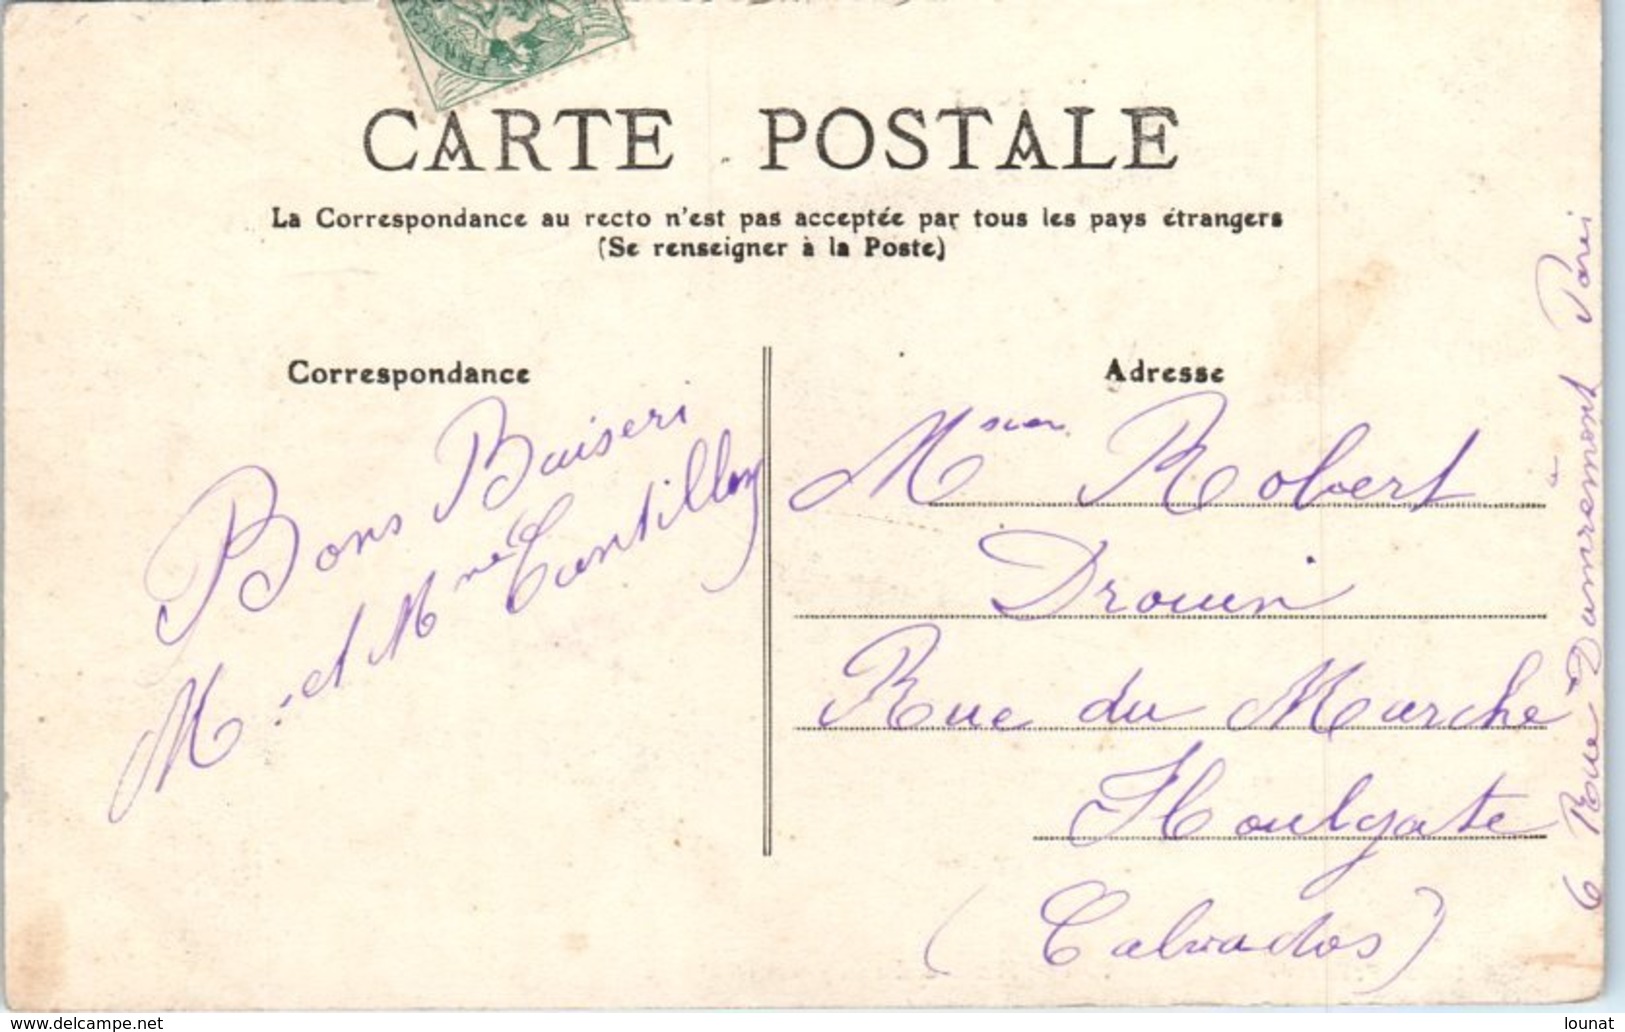 CARTE POSTALE
La Correspondance au recto n'est pas acceptée par tous les pays étrangers
(Se renseigner à la Poste)
Correspondance
Bons Baisers
M. et Mme Cantillon
Adresse
Msieur Robert
Drouin
Rue du Marché
Houlgate
(Calvados)
6 Rue Damrémont à Paris
www.delcampe.net
lounat